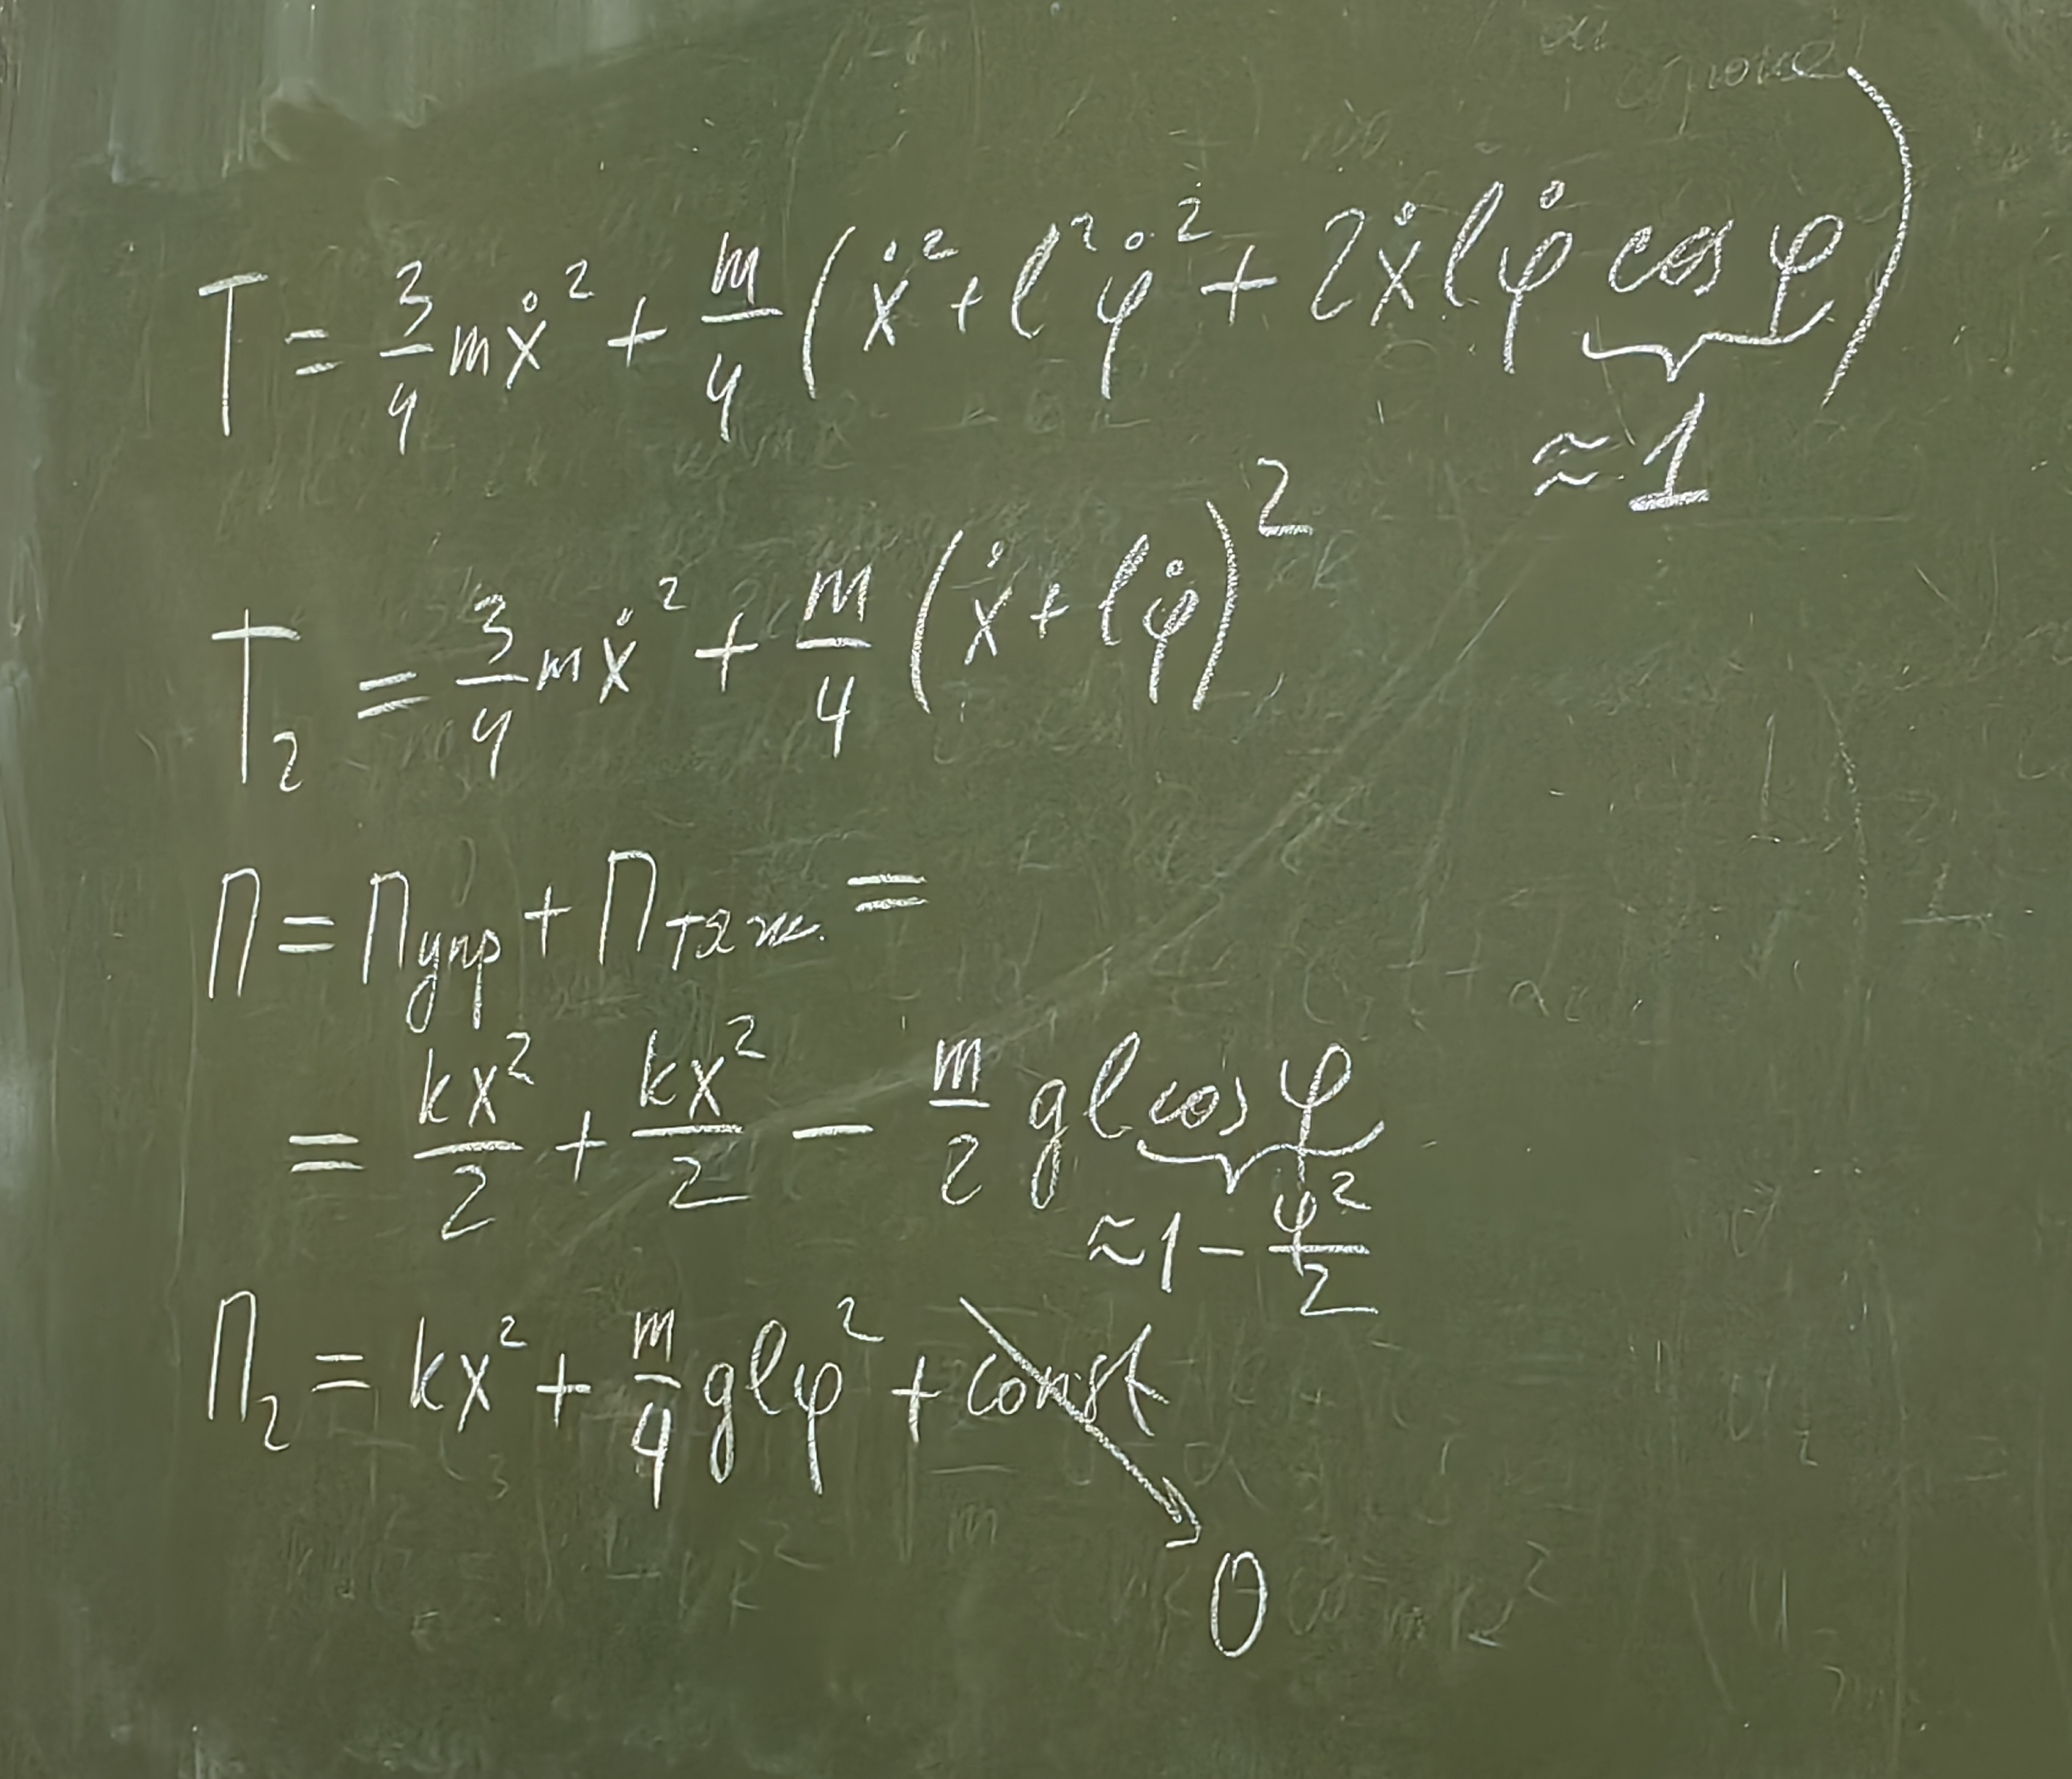 T = 3/4 mẋ² + m/4 (ẋ² + l²φ̇² + 2ẋlφ̇ cos φ)
≈ 1
T₂ = 3/4 mẋ² + m/4 (ẋ + lφ̇)²
П = Пупр + Птяж. =
= kx²/2 + kx²/2 − m/2 gl cos φ
≈ 1 − φ²/2
П₂ = kx² + m/4 glφ² + const
0